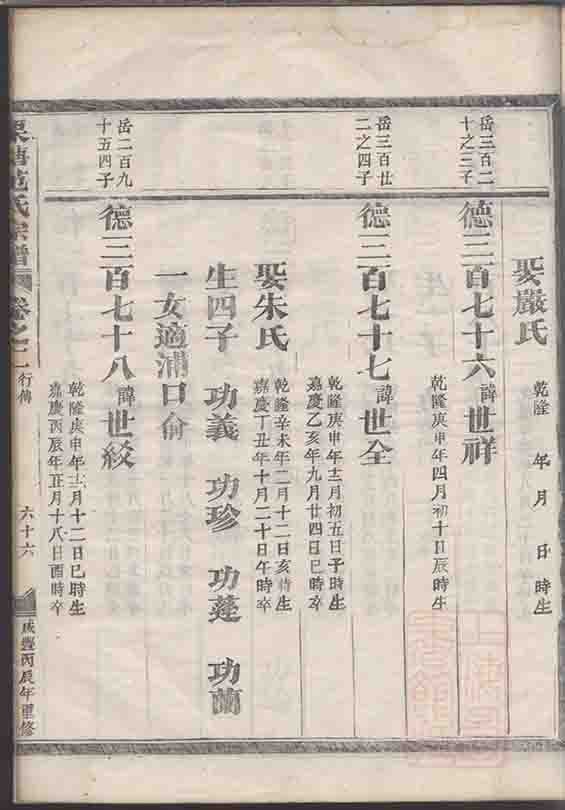 娶嚴氏 乾隆 年 月 日 時生
岳三百二十之三子
德三百七十六 諱世祥
乾隆庚申年四月初十日辰時生
岳三百廿二之四子
德三百七十七 諱世全
乾隆庚申年十二月初五日子時生
嘉慶乙亥年九月廿四日巳時卒
娶朱氏
乾隆辛未年二月十二日亥時生
嘉慶丁丑年十月二十日午時卒
生四子 功義 功珍 功蓬 功蘭
一女適浦口俞
岳二百九十五四子
德三百七十八 諱世綬
乾隆庚申年十二月十二日巳時生
嘉慶丙辰年正月十八日酉時卒
范氏宗譜 卷之二 行傳 六十六 咸豐丙辰年重修